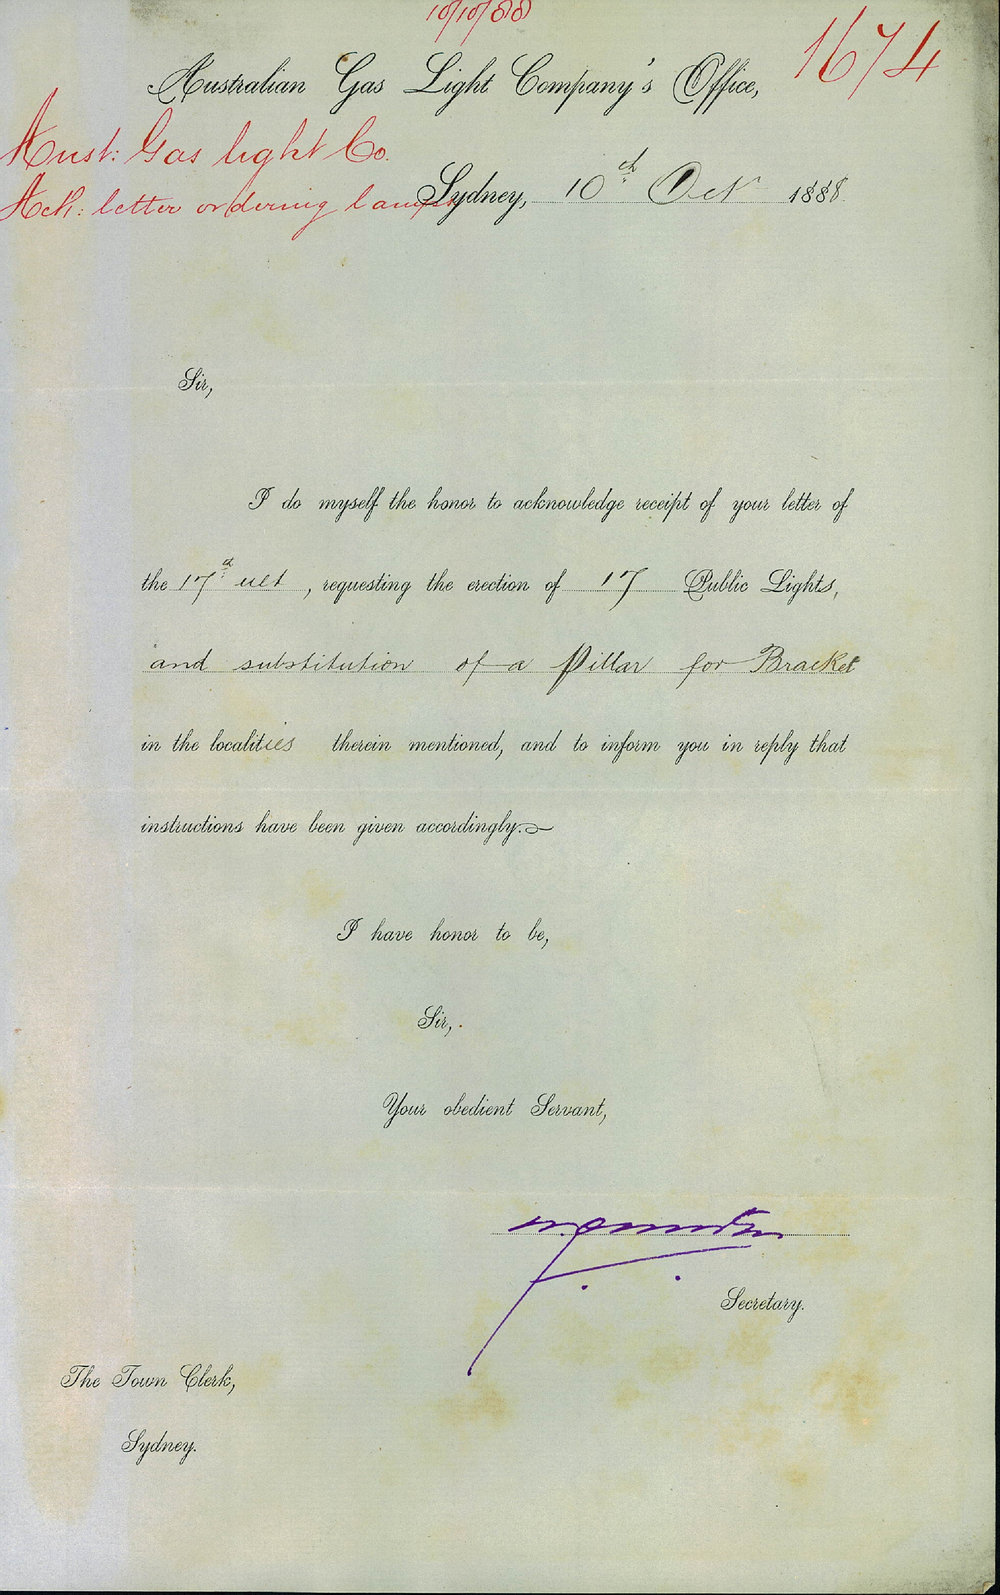 10/10/88
1674
Australian Gas Light Company's Office,
Aust: Gas light Co.
Ack: letter ordering lamps
Sydney, 10th Oct 1888.
Sir,
I do myself the honor to acknowledge receipt of your letter of
the 17th ult, requesting the erection of 17 Public Lights,
and substitution of a Pillar for Bracket
in the localities therein mentioned, and to inform you in reply that
instructions have been given accordingly.
I have honor to be,
Sir,
Your obedient Servant,
Secretary.
The Town Clerk,
Sydney.